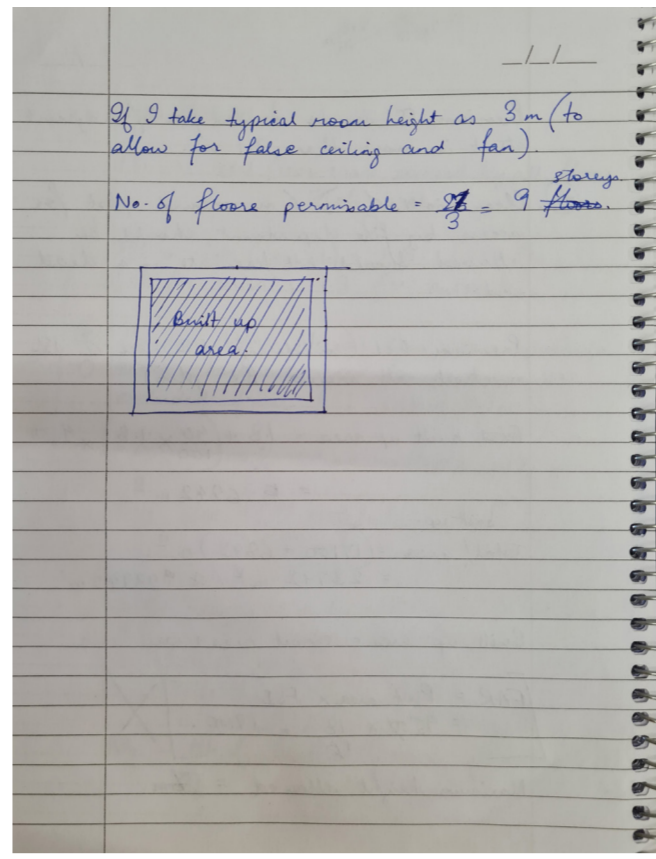 _/_/_
If I take typical room height as 3 m (to
allow for false ceiling and fan).
storeys.
No. of floors permissable = 27/3 = 9 floors.
Built up
area.